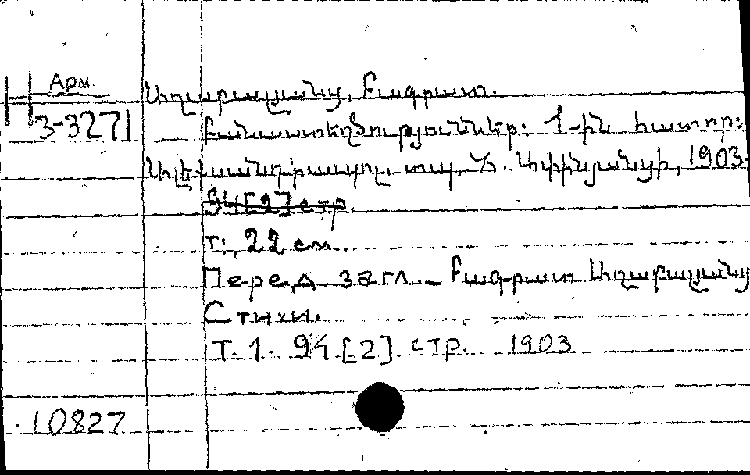 Арм.
Աղաբալյանց, Բագրատ.
Н
3-3271
Բանաստեղծություններ: 1-ին հատոր:
Ալեքսանդրապոլ, տպ. 1903.
94[2] стр.
т., 22 см.
Перед загл. _ Բագրատ Աղաբալյանց
Стихи.
Т. 1. 94 [2] стр. 1903
10827